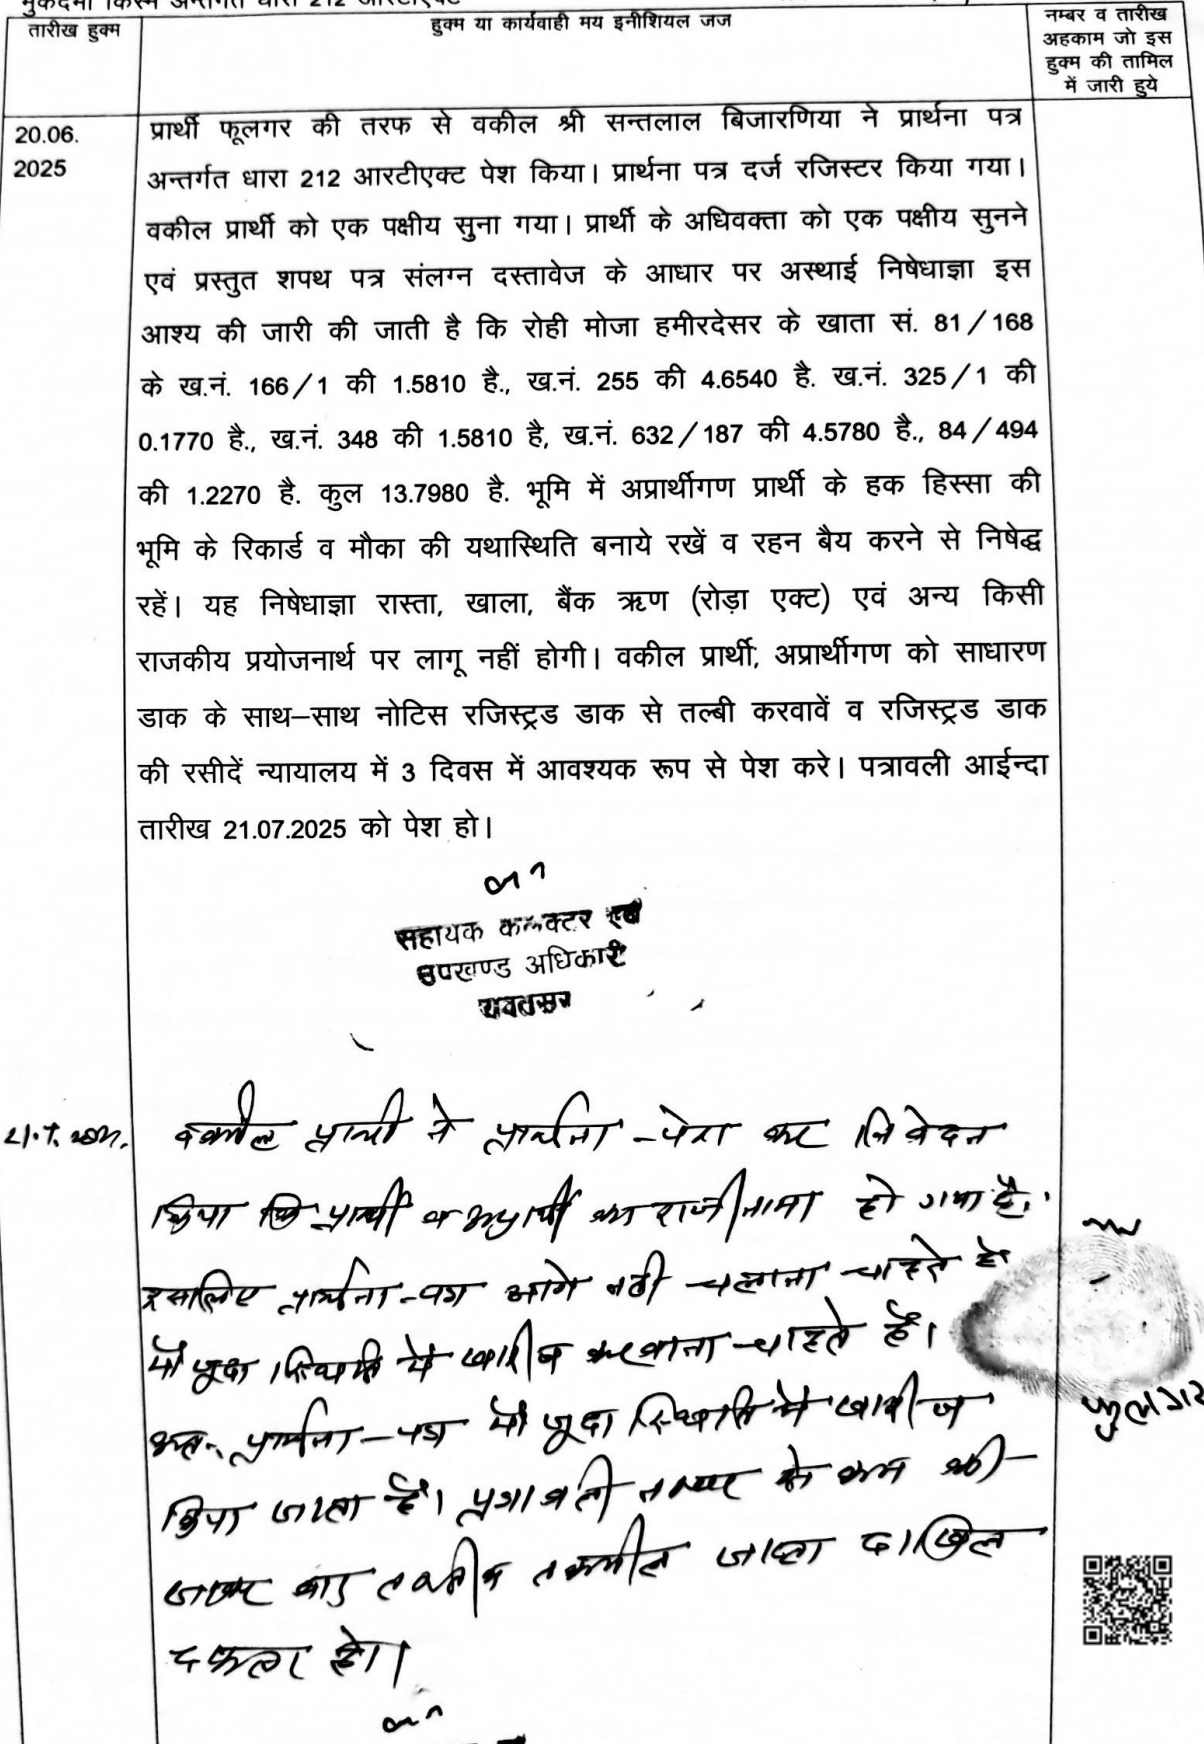 मुकदमा किस्म अन्तर्गत धारा 212 आरटीएक्ट
तारीख हुक्म
हुक्म या कार्यवाही मय इनीशियल जज
नम्बर व तारीख
अहकाम जो इस
हुक्म की तामिल
में जारी हुये
20.06.
2025
प्रार्थी फूलगर की तरफ से वकील श्री सन्तलाल बिजारणिया ने प्रार्थना पत्र
अन्तर्गत धारा 212 आरटीएक्ट पेश किया। प्रार्थना पत्र दर्ज रजिस्टर किया गया।
वकील प्रार्थी को एक पक्षीय सुना गया। प्रार्थी के अधिवक्ता को एक पक्षीय सुनने
एवं प्रस्तुत शपथ पत्र संलग्न दस्तावेज के आधार पर अस्थाई निषेधाज्ञा इस
आश्य की जारी की जाती है कि रोही मोजा हमीरदेसर के खाता सं. 81/168
के ख.नं. 166/1 की 1.5810 है., ख.नं. 255 की 4.6540 है. ख.नं. 325/1 की
0.1770 है., ख.नं. 348 की 1.5810 है, ख.नं. 632/187 की 4.5780 है., 84/494
की 1.2270 है. कुल 13.7980 है. भूमि में अप्रार्थीगण प्रार्थी के हक हिस्सा की
भूमि के रिकार्ड व मौका की यथास्थिति बनाये रखें व रहन बैय करने से निषेद्ध
रहें। यह निषेधाज्ञा रास्ता, खाला, बैंक ऋण (रोड़ा एक्ट) एवं अन्य किसी
राजकीय प्रयोजनार्थ पर लागू नहीं होगी। वकील प्रार्थी, अप्रार्थीगण को साधारण
डाक के साथ–साथ नोटिस रजिस्ट्रड डाक से तल्बी करवावें व रजिस्ट्रड डाक
की रसीदें न्यायालय में 3 दिवस में आवश्यक रूप से पेश करे। पत्रावली आईन्दा
तारीख 21.07.2025 को पेश हो।
सहायक कलक्टर एवं
उपखण्ड अधिकारी
वकील प्रार्थी ने प्रार्थना -पेश कर निवेदन
किया कि प्रार्थी व अप्रार्थी का राजीनामा हो गया है.
इसलिए प्रार्थना-पत्र आगे नही चलाना चाहते है
मौजूदा स्थिति मे खारीज करवाना चाहते हैं।
अतः प्रार्थना-पत्र मौजूदा स्थिति मे खारीज
किया जाता है। पत्रावली नम्बर से कम की-
जाकर बाद तकमील जाब्ता दाखिल
दफ्तर हो।
फुलगर